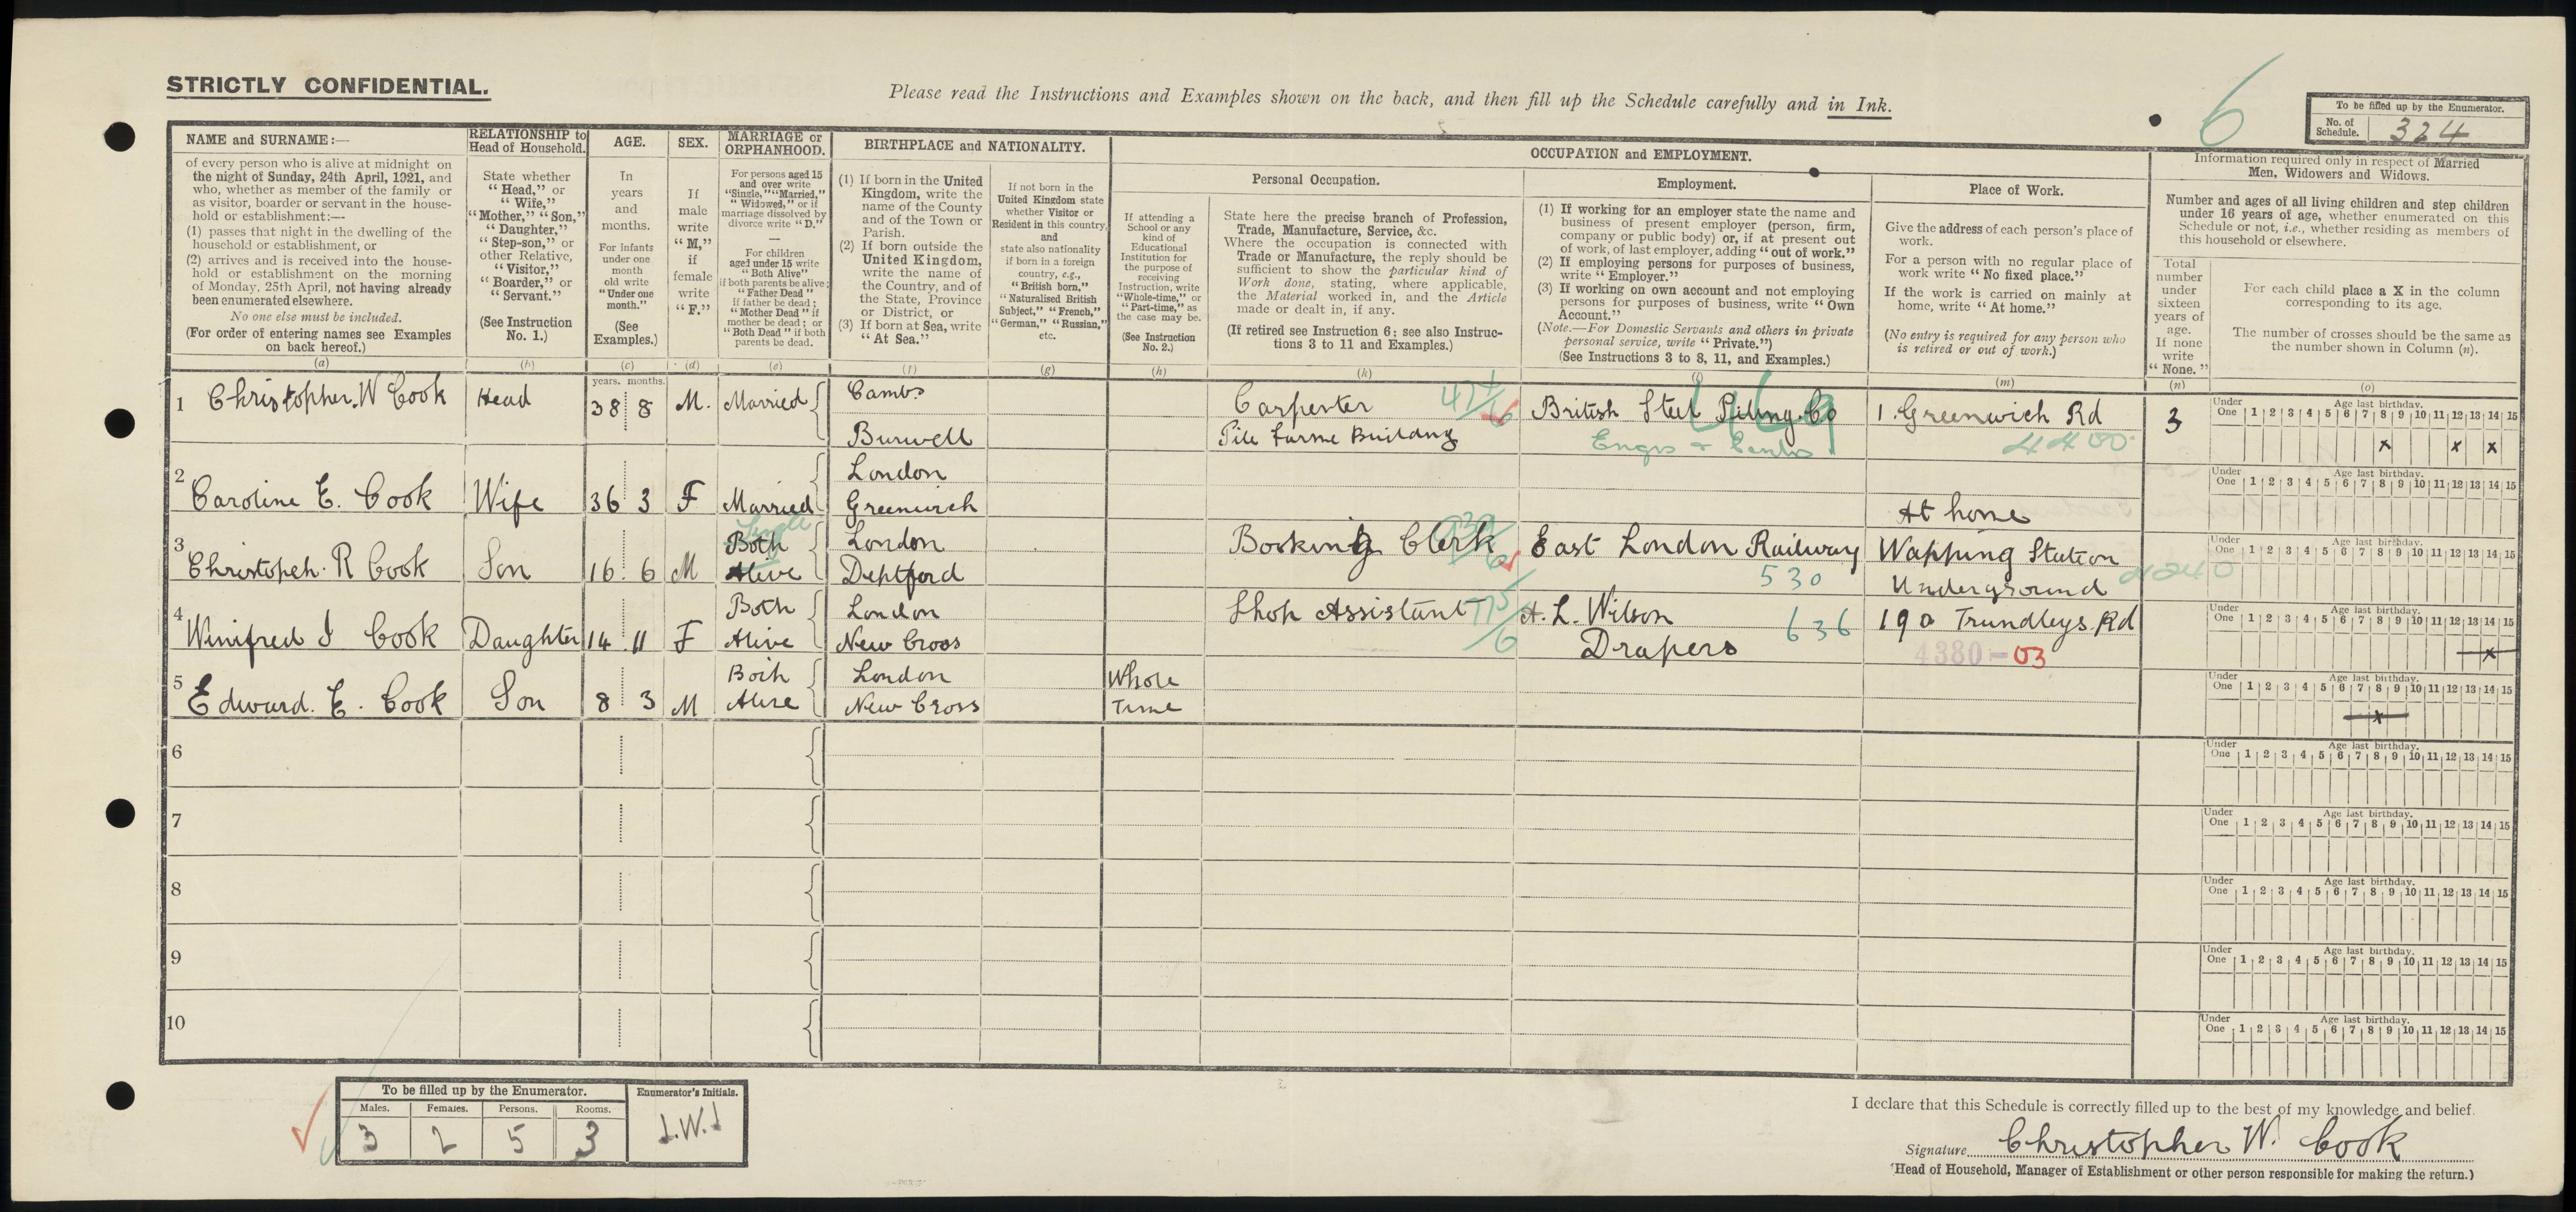 STRICTLY CONFIDENTIAL.
Please read the Instructions and Examples shown on the back, and then fill up the Schedule carefully and in Ink.
6
To be filled up by the Enumerator.
No. of Schedule. 324
NAME and SURNAME:—
of every person who is alive at midnight on
the night of Sunday, 24th April, 1921, and
who, whether as member of the family or
as visitor, boarder or servant in the house-
hold or establishment:—
(1) passes that night in the dwelling of the
household or establishment, or
(2) arrives and is received into the house-
hold or establishment on the morning
of Monday, 25th April, not having already
been enumerated elsewhere.
No one else must be included.
(For order of entering names see Examples
on back hereof.)
(a)
RELATIONSHIP to
Head of Household.
State whether
"Head," or
"Wife,"
"Mother," "Son,"
"Daughter,"
"Step-son," or
other Relative,
"Visitor,"
"Boarder," or
"Servant."
(See Instruction
No. 1.)
(b)
AGE.
In
years
and
months.
For infants
under one
month
old write
"Under one
month."
(See
Examples.)
(c)
SEX.
If
male
write
"M,"
if
female
write
"F."
(d)
MARRIAGE or
ORPHANHOOD.
For persons aged 15
and over write
"Single," "Married,"
"Widowed," or if
marriage dissolved by
divorce write "D."
—
For children
aged under 15 write
"Both Alive"
if both parents be alive;
"Father Dead"
if father be dead;
"Mother Dead" if
mother be dead; or
"Both Dead" if both
parents be dead.
(e)
BIRTHPLACE and NATIONALITY.
(1) If born in the United
Kingdom, write the
name of the County
and of the Town or
Parish.
(2) If born outside the
United Kingdom,
write the name of
the Country, and of
the State, Province
or District, or
(3) If born at Sea, write
"At Sea."
(f)
If not born in the
United Kingdom state
whether Visitor or
Resident in this country,
and
state also nationality
if born in a foreign
country, e.g.,
"British born,"
"Naturalised British
Subject," "French,"
"German," "Russian,"
etc.
(g)
OCCUPATION and EMPLOYMENT.
Personal Occupation.
If attending a
School or any
kind of
Educational
Institution for
the purpose of
receiving
Instruction, write
"Whole-time," or
"Part-time," as
the case may be.
(See Instruction
No. 2.)
(h)
State here the precise branch of Profession,
Trade, Manufacture, Service, &c.
Where the occupation is connected with
Trade or Manufacture, the reply should be
sufficient to show the particular kind of
Work done, stating, where applicable,
the Material worked in, and the Article
made or dealt in, if any.
(If retired see Instruction 6; see also Instruc-
tions 3 to 11 and Examples.)
(k)
Employment.
(1) If working for an employer state the name and
business of present employer (person, firm,
company or public body) or, if at present out
of work, of last employer, adding "out of work."
(2) If employing persons for purposes of business,
write "Employer."
(3) If working on own account and not employing
persons for purposes of business, write "Own
Account."
(Note.—For Domestic Servants and others in private
personal service, write "Private.")
(See Instructions 3 to 8, 11, and Examples.)
(l)
Place of Work.
Give the address of each person's place of
work.
For a person with no regular place of
work write "No fixed place."
If the work is carried on mainly at
home, write "At home."
(No entry is required for any person who
is retired or out of work.)
(m)
Information required only in respect of Married
Men, Widowers and Widows.
Number and ages of all living children and step children
under 16 years of age, whether enumerated on this
Schedule or not, i.e., whether residing as members of
this household or elsewhere.
Total
number
under
sixteen
years of
age.
If none
write
"None."
(n)
For each child place a X in the column
corresponding to its age.
The number of crosses should be the same as
the number shown in Column (n).
(o)
years. months.
1 Christopher. W Cook Head 38 8 M. Married Cambs Carpenter British Steel Piling. Co 1. Greenwich Rd 3
Burwell Pile Frame Building 4400
Under One 1 2 3 4 5 6 7 8 9 10 11 12 13 14 15
Age last birthday.
x x x
2 Caroline E. Cook Wife 36 3 F Married London
Greenwich At home
Under One 1 2 3 4 5 6 7 8 9 10 11 12 13 14 15
Age last birthday.
3 Christopeh. R Cook Son 16 6 M Single Both London Booking Clerk East London Railway Wapping Station
Alive Deptford 530 Underground 4240
Under One 1 2 3 4 5 6 7 8 9 10 11 12 13 14 15
Age last birthday.
4 Winifred I Cook Daughter 14 11 F Both London Shop Assistant 775/6 H. L. Wilson 636 190 Trundleys Rd
Alive New Cross Drapers 4380-03
Under One 1 2 3 4 5 6 7 8 9 10 11 12 13 14 15
Age last birthday.
x
5 Edward. E. Cook Son 8 3 M Both London Whole
Alive New Cross Time
Under One 1 2 3 4 5 6 7 8 9 10 11 12 13 14 15
Age last birthday.
x
6
Under One 1 2 3 4 5 6 7 8 9 10 11 12 13 14 15
Age last birthday.
7
Under One 1 2 3 4 5 6 7 8 9 10 11 12 13 14 15
Age last birthday.
8
Under One 1 2 3 4 5 6 7 8 9 10 11 12 13 14 15
Age last birthday.
9
Under One 1 2 3 4 5 6 7 8 9 10 11 12 13 14 15
Age last birthday.
10
Under One 1 2 3 4 5 6 7 8 9 10 11 12 13 14 15
Age last birthday.
To be filled up by the Enumerator.
Males. Females. Persons. Rooms.
3 2 5 3
Enumerator's Initials.
J.W.J
I declare that this Schedule is correctly filled up to the best of my knowledge and belief.
Signature Christopher W. Cook
(Head of Household, Manager of Establishment or other person responsible for making the return.)